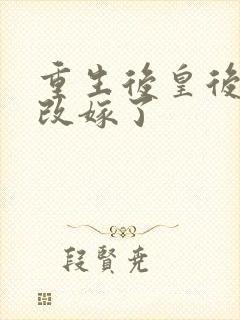 重生後皇後
改嫁了
段賢尭